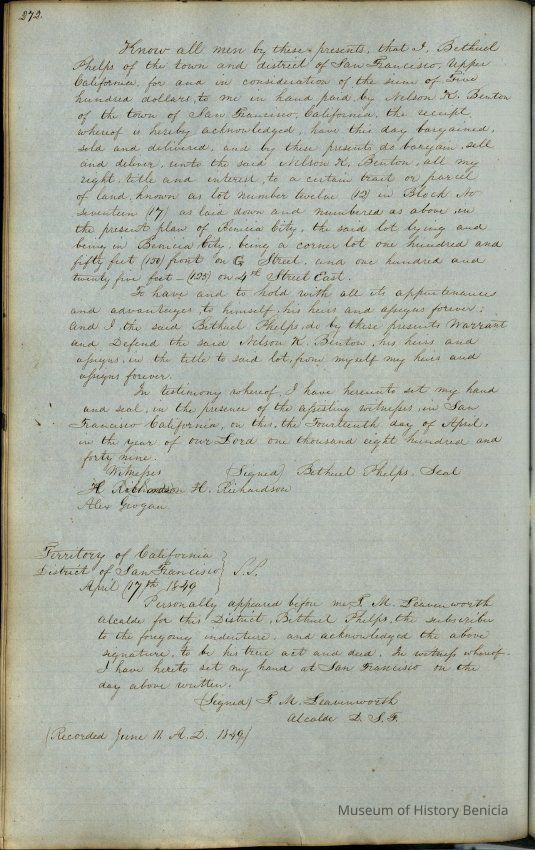 272.
Know all men by these presents, that I, Bethuel
Phelps of the town and district of San Francisco, Upper
California, for and in consideration of the sum of Five
hundred dollars, to me in hand paid by Nelson K. Benton
of the town of San Francisco, California, the receipt
whereof is hereby acknowledged, have this day bargained,
sold and delivered, and by these presents do bargain, sell
and deliver, unto the said Nelson K. Benton, all my
right, title and interest, to a certain tract or parcel
of land, known as lot number twelve (12) in Block No
seventeen (17) as laid down and numbered as above, in
the present plan of Benicia City, the said lot lying and
being in Benicia City, being a corner lot one hundred and
fifty feet (150) front on G Street, and one hundred and
twenty five feet - (125) on 4th Street East.
To have and to hold with all its appurtenances
and advantages, to himself, his heirs and assigns forever:
And I the said Bethuel Phelps, do by these presents Warrant
and Defend the said Nelson K. Benton, his heirs and
assigns, in the title to said lot, from myself my heirs and
assigns forever.
In testimony whereof, I have hereunto set my hand
and seal, in the presence of the assisting witnesses, in San
Francisco California, on this, the Fourteenth day of April,
in the year of our Lord one thousand eight hundred and
forty nine.
Witnesses (Signed) Bethuel Phelps. Seal
H. Richardson H. Richardson
Alex Grogan
Territory of California
District of San Francisco } S.S.
April 17th 1849
Personally appeared before me, T. M. Leavenworth
Alcalde for this District, Bethuel Phelps, the subscriber
to the foregoing indenture, and acknowledged the above
signature, to be his true act and deed. In witness whereof
I have hereto set my hand at San Francisco on the
day above written.
(Signed) T. M. Leavenworth
Alcalde D. S. F.
(Recorded June 11. A.D. 1849)
Museum of History Benicia